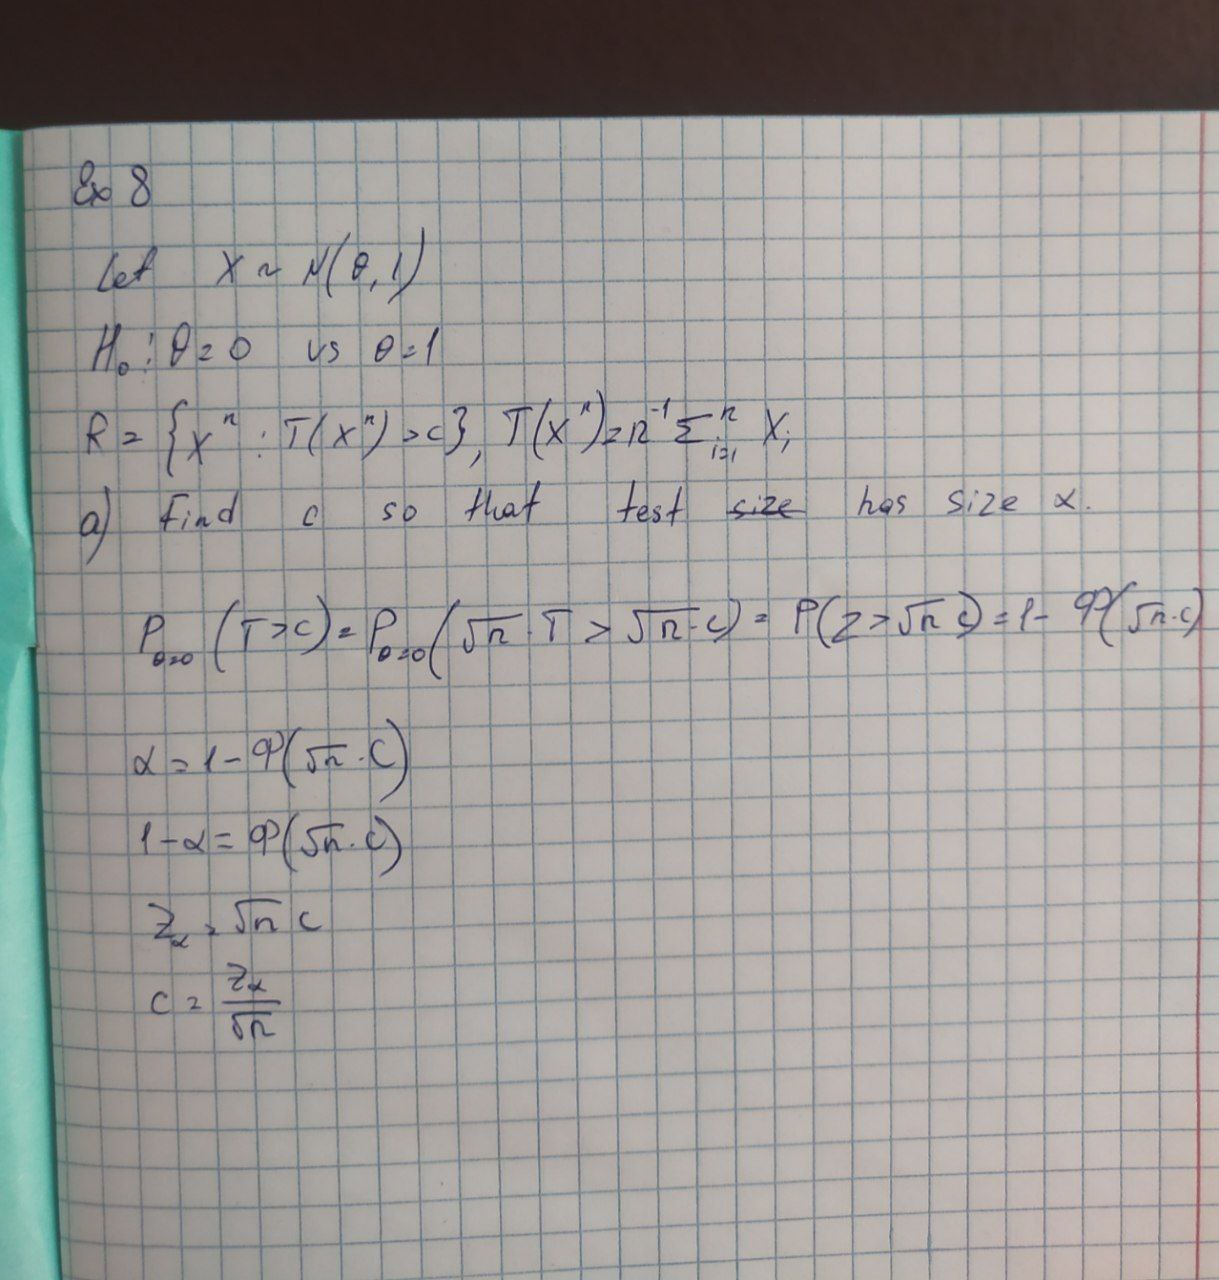 Ex 8
Let X ~ N(θ,1)
H₀: θ=0 vs θ=1
R = {Xⁿ : T(Xⁿ) > c}, T(Xⁿ) = n⁻¹ Σⁿᵢ₌₁ Xᵢ
a) Find c so that test ~~size~~ has size α.
P_{θ=0} (T>c) = P_{θ=0} (√n · T > √n · c) = P(Z > √n c) = 1 - Φ(√n · c)
α = 1 - Φ(√n · c)
1 - α = Φ(√n · c)
Z_α = √n c
c = Z_α / √n